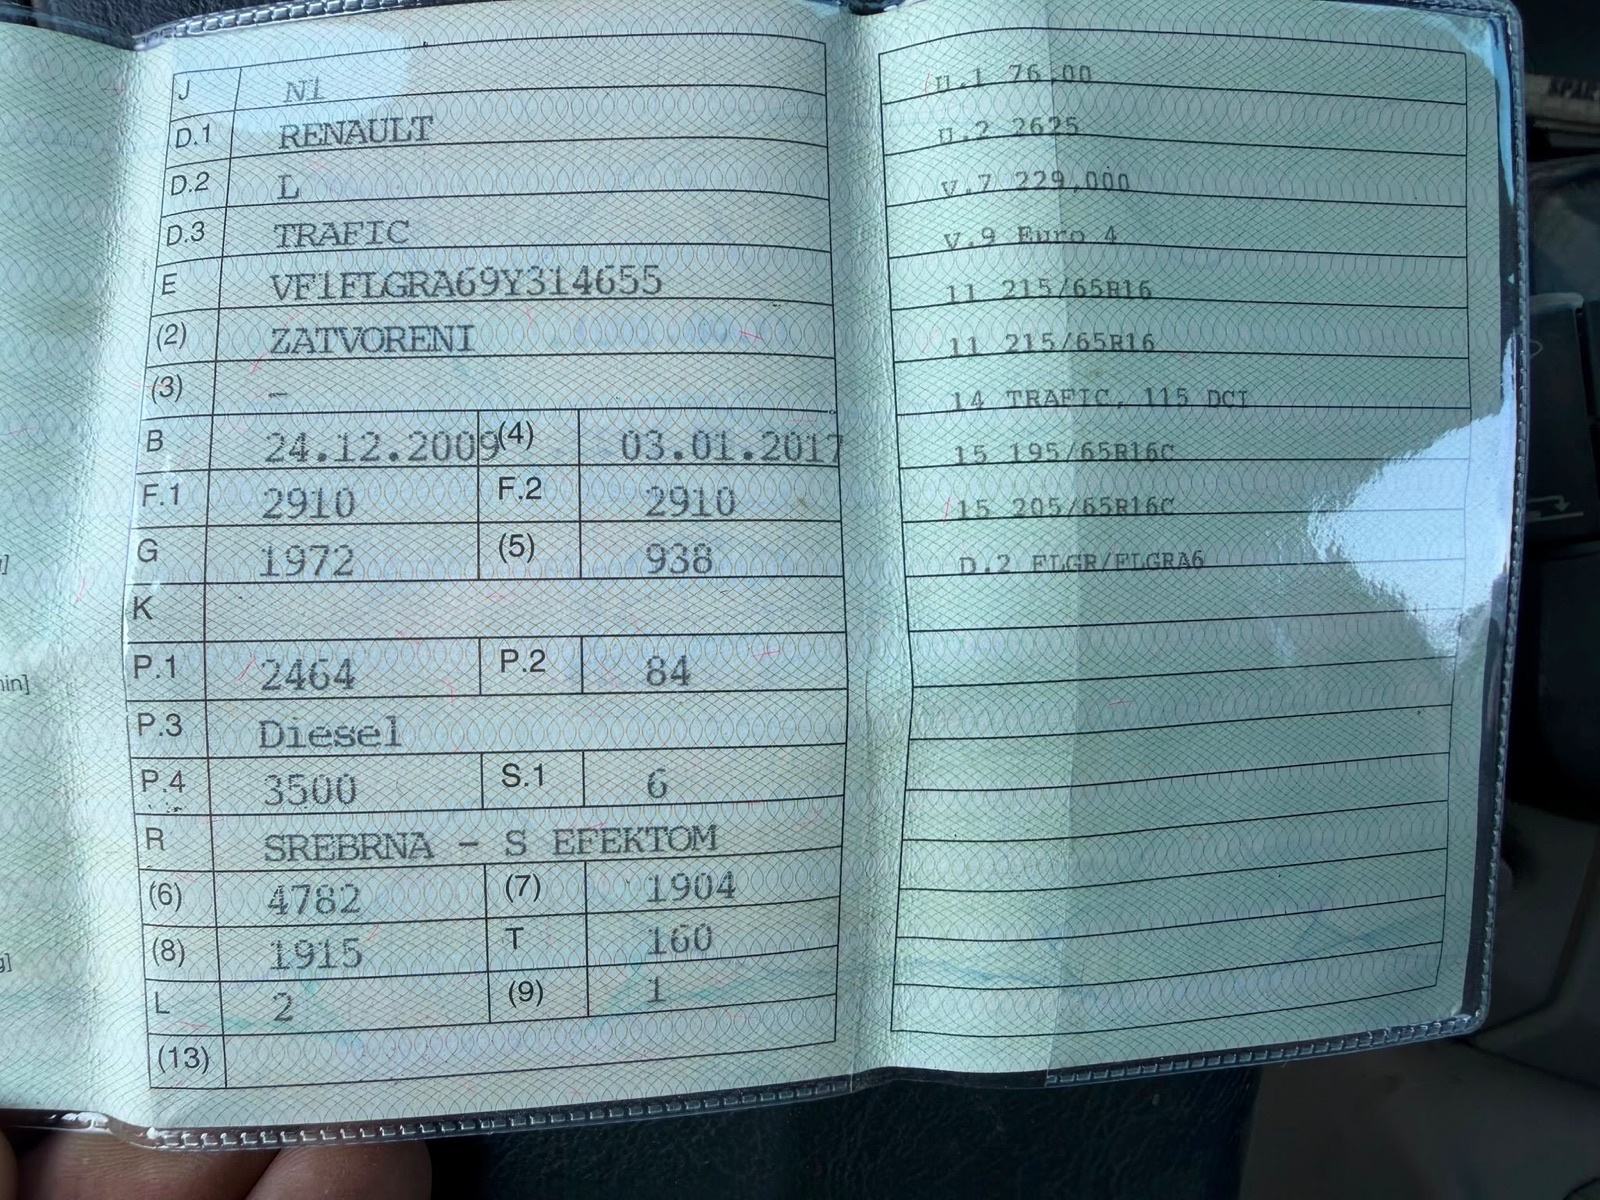 J N1
D.1 RENAULT
D.2 L
D.3 TRAFIC
E VF1FLGRA69Y314655
(2) ZATVORENI
(3) –
B 24.12.2009 (4) 03.01.2017
F.1 2910 F.2 2910
G 1972 (5) 938
K
P.1 2464 P.2 84
P.3 Diesel
P.4 3500 S.1 6
R SREBRNA - S EFEKTOM
(6) 4782 (7) 1904
(8) 1915 T 160
L 2 (9) 1
(13)
u.1 76,00
u.2 2625
v.7 229,000
v.9 Euro 4
11 215/65R16
11 215/65R16
14 TRAFIC, 115 DCI
15 195/65R16C
15 205/65R16C
D.2 FLGR/FLGRA6